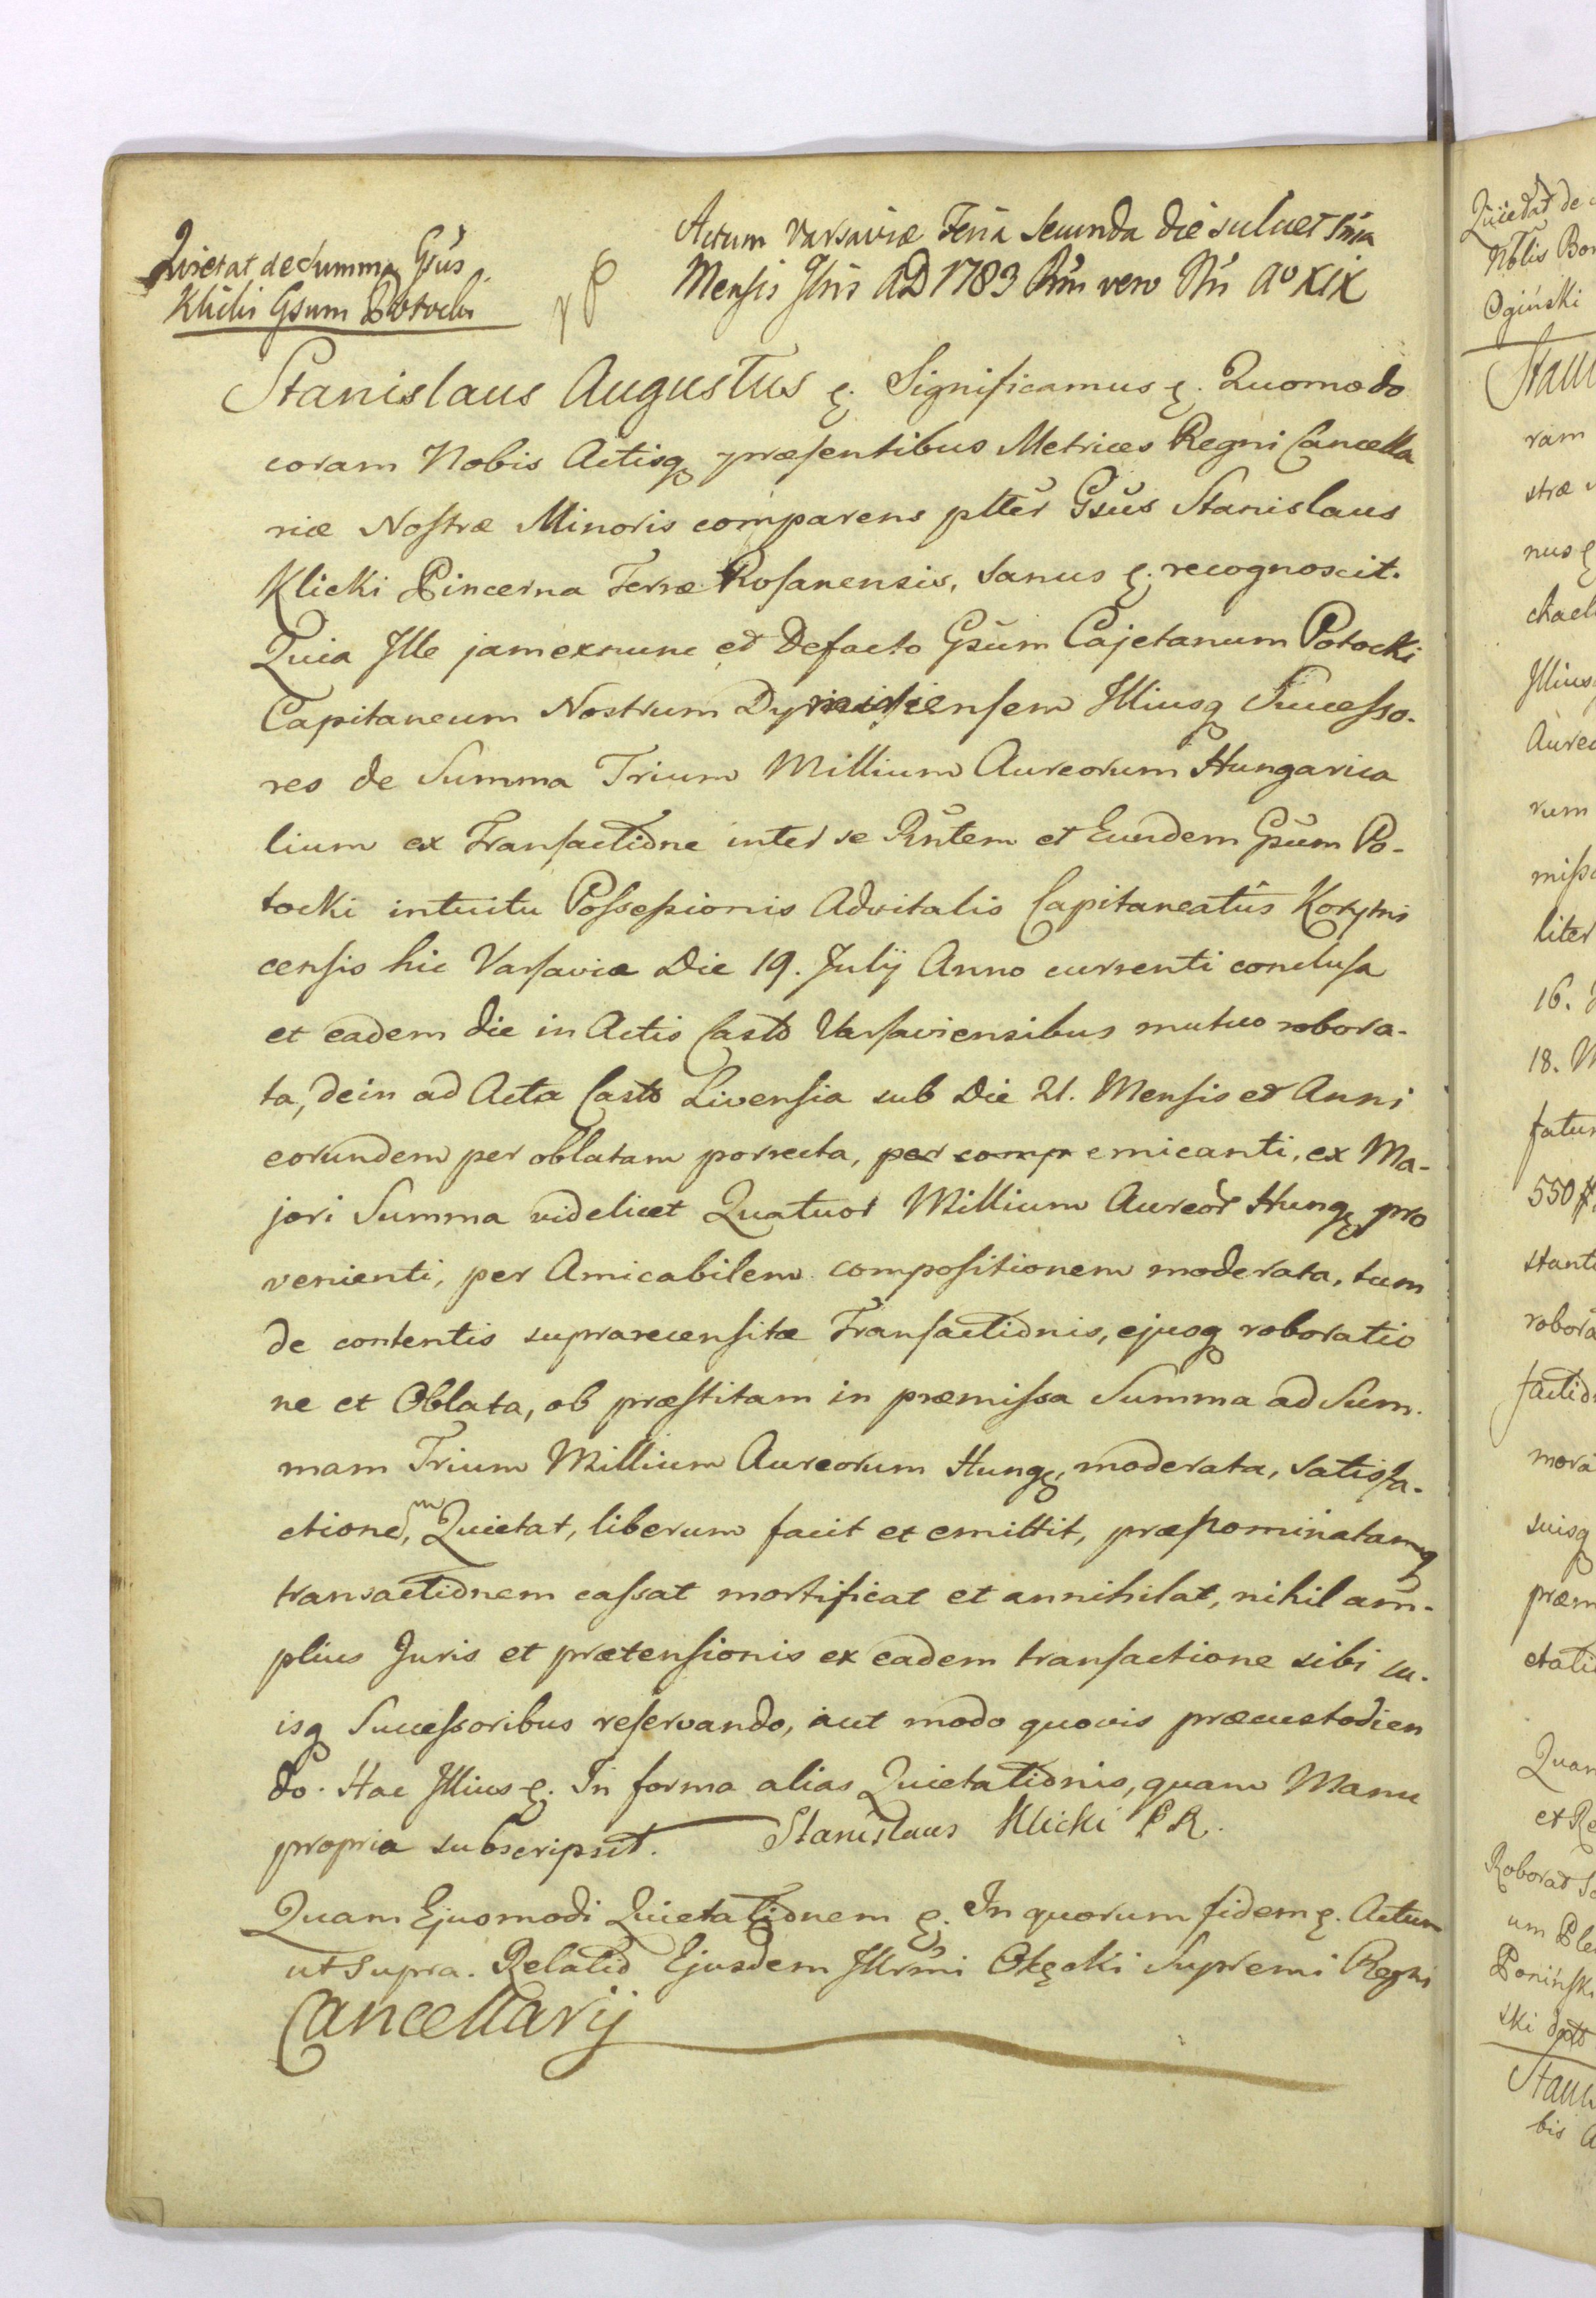 Quietat de Summa Gsus
Klicki Gsum Potocki
Actum Varsaviæ Feria Secunda die
Mensis AD 1783 vero Aº XIX
Stanislaus Augustus ę. Significamus ę. Quomodo
coram Nobis Actisq præsentibus Metrices Regni Cancella
riæ Nostræ Minoris comparens plter Gsus Stanislaus
Klicki Pincerna Terræ Rosanensis, sanus ę. recognoscit.
Quia Ille jam exnunc et Defacto Gsum Cajetanum Potocki
Capitaneum Nostrum Illiusq Successo-
res de Summa Trium Millium Aureorum Hungarica
lium ex Transactione inter se Rntem et Eundem Gsum Po-
tocki intuitu Possessionis Advitalis Capitaneatus Korytni
censis hic Varsaviæ Die 19. Julij Anno currenti conclusa
et eadem die in Actis Castr Varsaviensibus mutuo robora-
ta, dein ad Acta Castr Livensia sub Die 21. Mensis et Anni
eorundem per oblatam porrecta, per comp emicanti, ex Ma-
jori Summa videlicet Quatuor Millium Aureor Hungę pro
venienti, per Amicabilem compositionem moderata, tum
de contentis suprarecensitæ Transactionis, ejusq roboratio
ne et Oblata, ob præstitam in præmissa Summa ad Sum-
mam Trium Millium Aureorum Hungę, moderata, satisfa-
ctionem, Quietat, liberum facit et emittit, prænominatamq
transactionem cassat mortificat et annihilat, nihil am-
plius Juris et prætensionis ex eadem transactione sibi su-
isq Successoribus reservando, aut modo quovis præcustodien
do. Hac Illius ę. In forma alias Quietationis, quam Manu
propria subscripsit. Stanislaus Klicki P R.
Quam Ejusmodi Quietationem ę. In quorum fidem ę. Actum
ut supra. Relatio Ejusdem Illrmi Okęcki Supremi Regni
Cancellarij
Quietat de
Nblis
Ogiński
ram
stræ
nus ę
chael
Illius
Aureo
rum
misso
liter
16.
18.
fatum
550
stant
robora
factio
mora
suisq
præm
ctatio
Quam
et Re
Roborat
um
Poniński
ski
Stani
bis